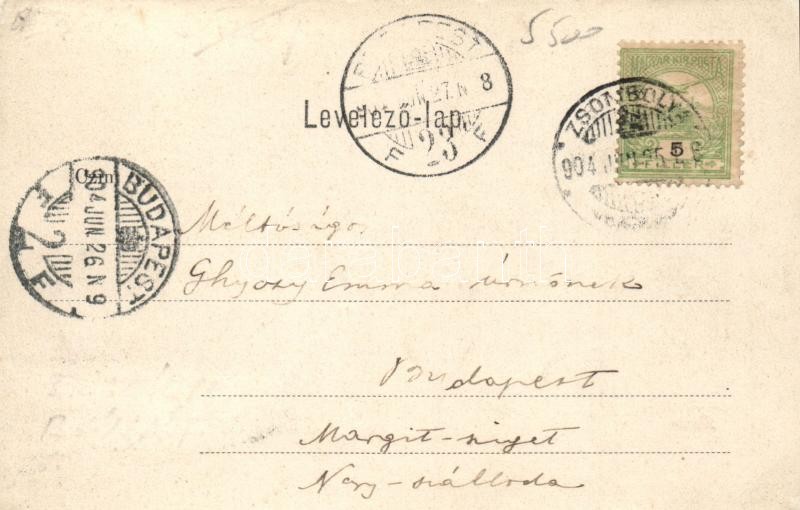 5500
MAGYAR KIR. POSTA
5
ZSOMBOLYA
904 JUN 25
BUDAPEST
27 N 8
23
Levelező-lap.
Czím
BUDAPEST
904 JUN. 26 N 9
F 2 F
Méltóságos
Ghyczy Emma úrnőnek
Budapest
Margit-sziget
Nagy-szálloda